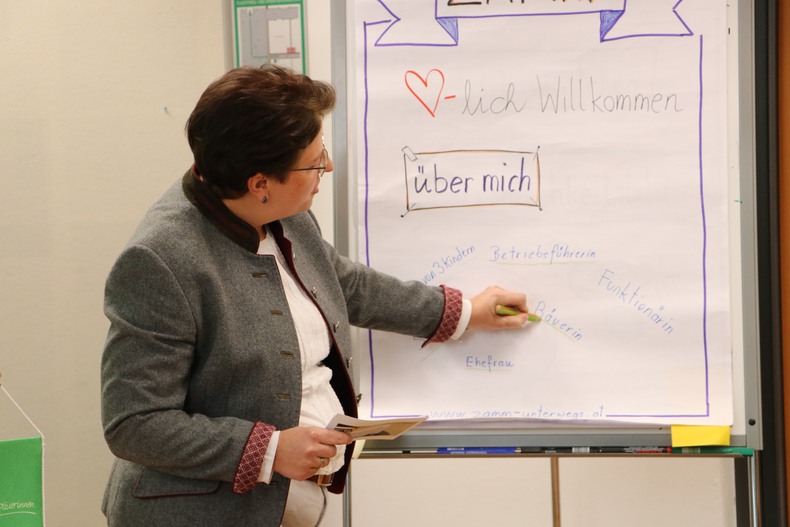 ♡-lich Willkommen
über mich
von 3 Kindern
Betriebsführerin
Funktionärin
Bäuerin
Ehefrau
www.zamm-unterwegs.at